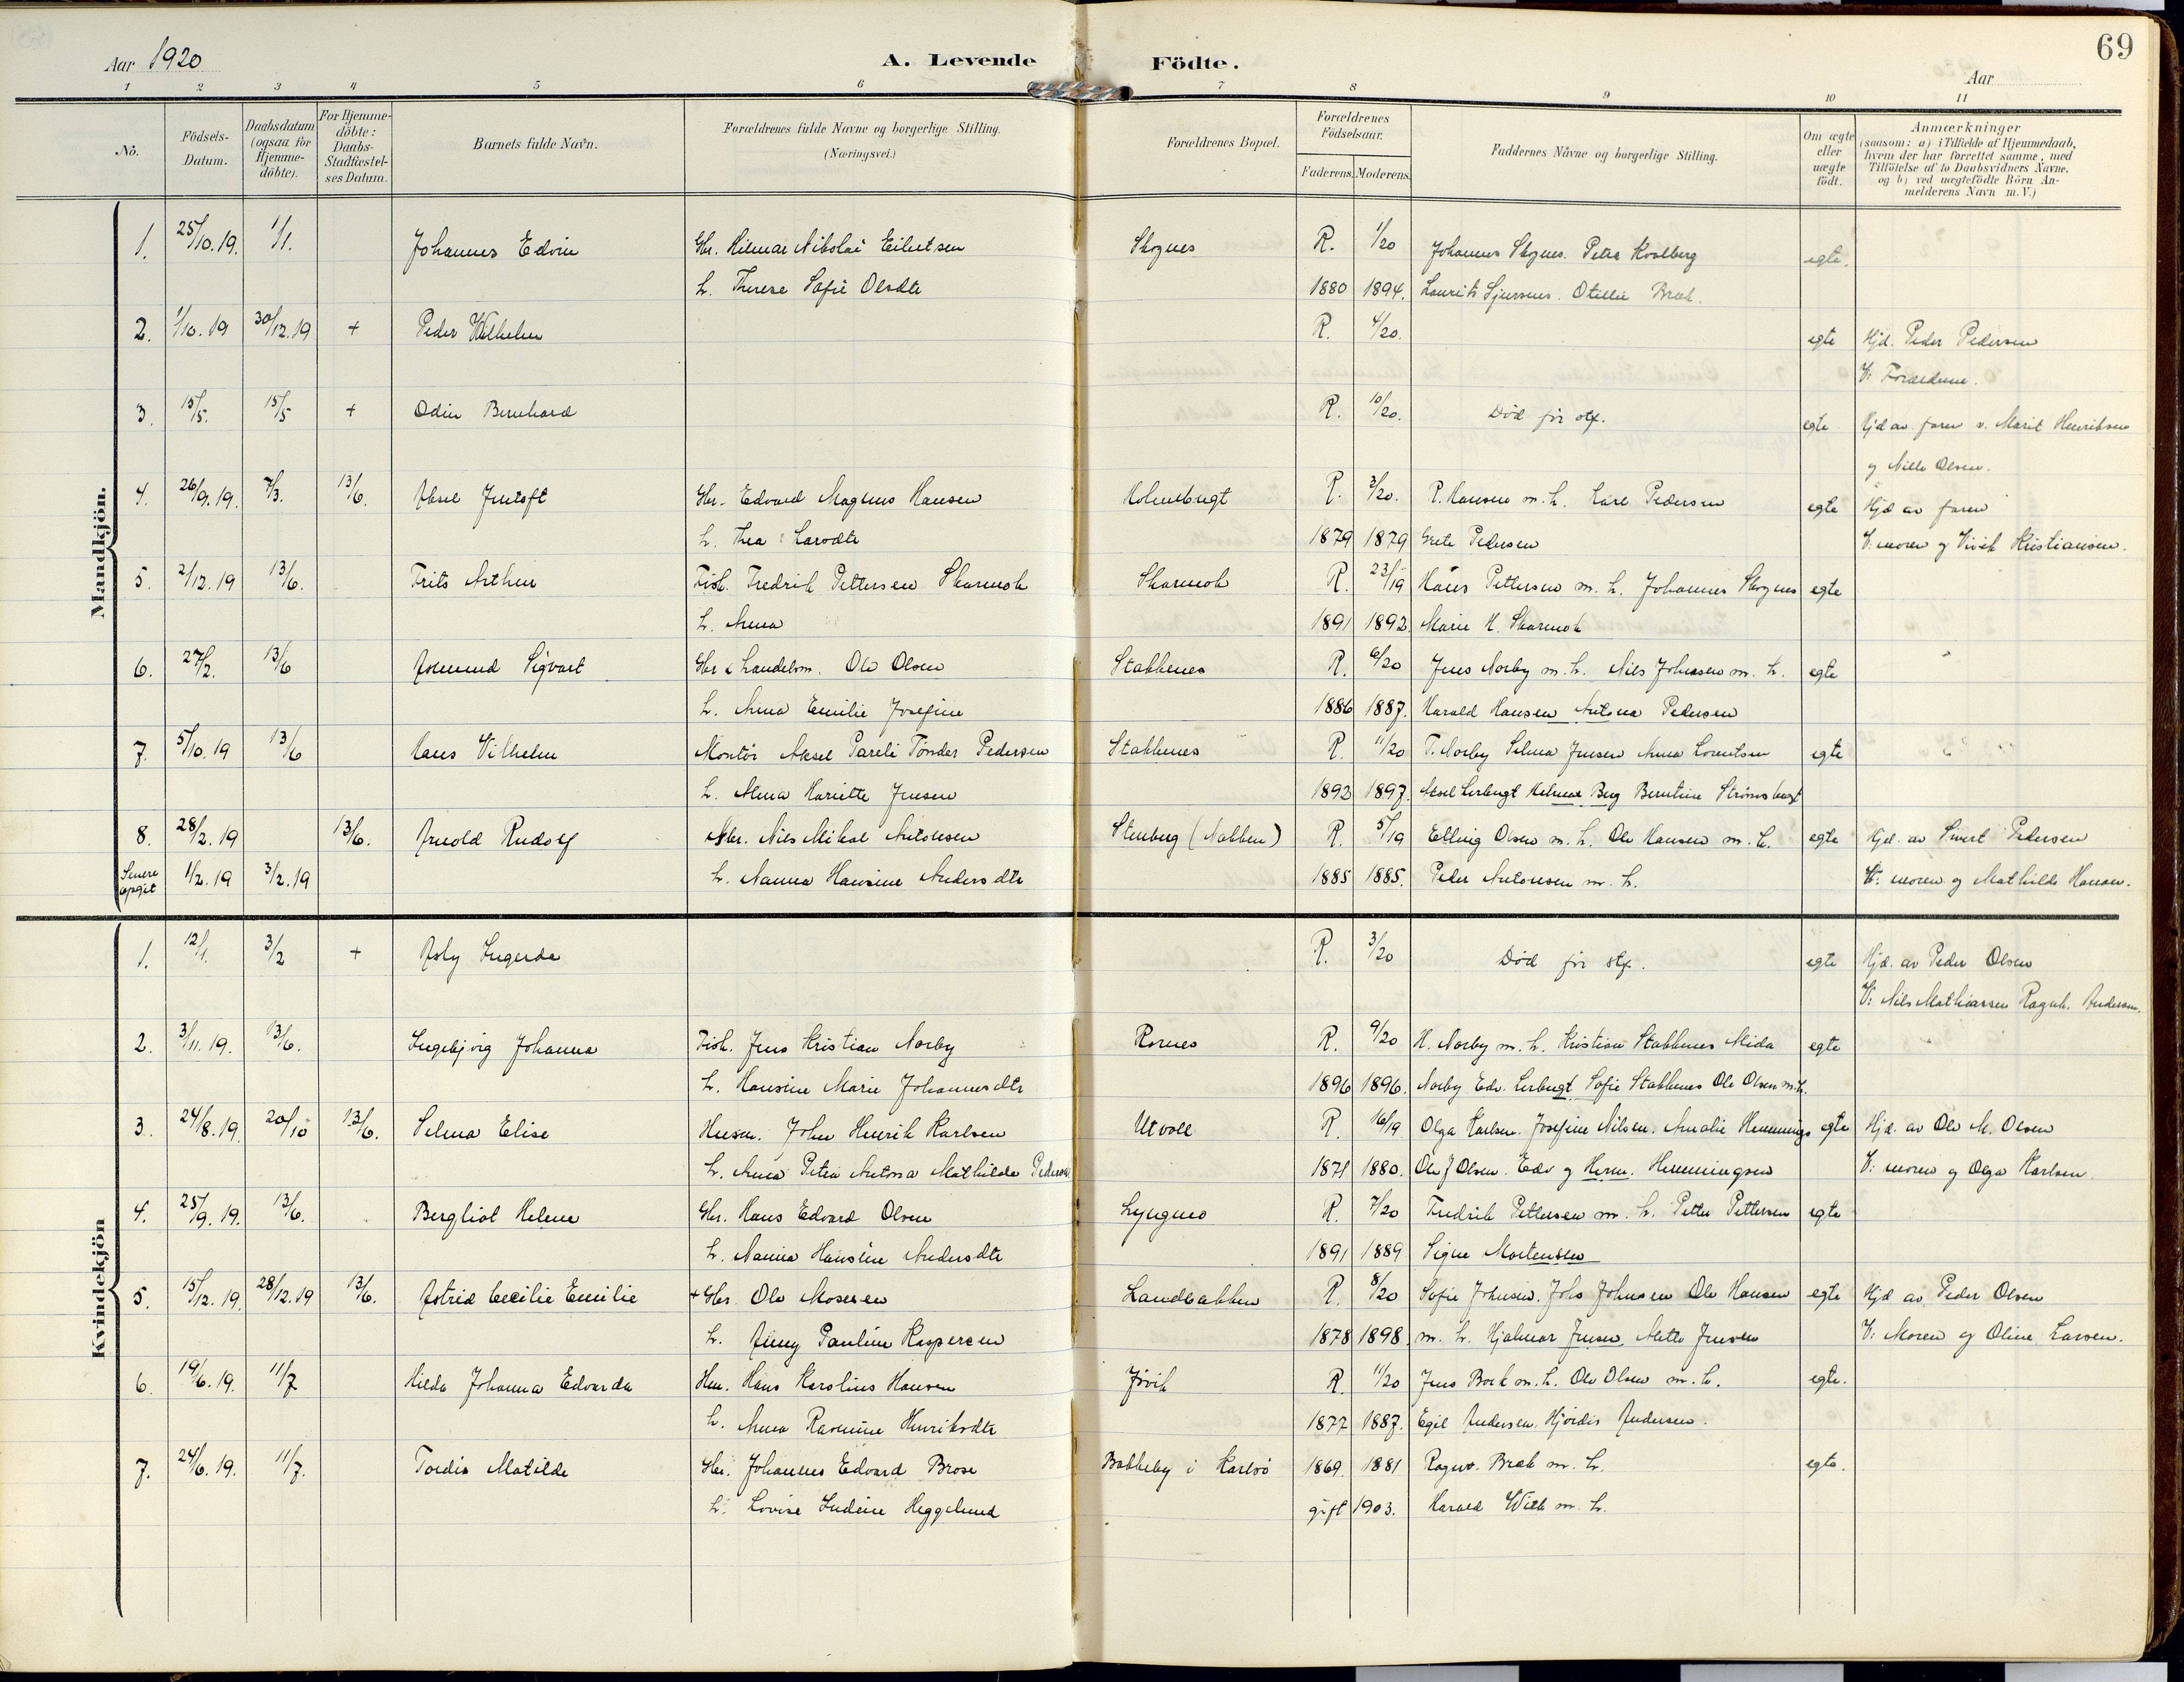 69
Aar 1920
A. Levende Födte.
Aar
1 2 3 4 5 6 7 8 9 10 11
No.
Födsels-Datum.
Daabsdatum (ogsaa for Hjemme-döbte).
For Hjemme-döbte: Daabs-Stadfæstel-ses Datum.
Barnets fulde Navn.
Forældrenes fulde Navne og borgerlige Stilling. (Næringsvei.)
Forældrenes Bopæl.
Forældrenes Födselsaar.
Faderens. Moderens.
Faddernes Navne og borgerlige Stilling.
Om ægte eller uægte födt.
Anmærkninger (saasom: a) i Tilfælde af Hjemmedaab, hvem der har forrettet samme, med Tilföielse af to Daabsvidners Navne. og b) ved uægtefödte Börn An-melderens Navn m. V.)
Mandkjön.
1. 25/10.19. 1/1. Johannes Edvin Gbr. Hilmar Nikolai Eilertsen Skognes R. 1/20 Johannes Skognes. Petra Kvalberg egte.
h. Therese Sofie Olsdtr 1880 1894. Laurits Sjursnes. Otillie Bræk.
2. 1/10.19 30/12.19 + Peder Wilhelm R. 4/20. egte Hjd. Peder Pedersen
V: Forældrene.
3. 15/5. 15/5 + Odin Bernhard R. 10/20. Død før stf. egte Hjd av faren v. Marit Henriksen
og Nille Olsen.
4. 26/9.19. 7/3. 13/6. Gbr. Edvard Magnus Hansen Holmbugt R. 3/20. P. Hansen m. h. Karl Pedersen egte Hjd av faren
h. Thea Larsdtr 1879 1879 Grete Pedersen V: moren og Kristiansen.
5. 2/12.19 13/6. Frits Arthur Fisk. Fredrik Pettersen Skarmok Skarmok R. 23/19 Hans Pettersen m. h. Johannes Skognes egte
h. Anna 1891 1892. Marie H. Skarmok
6. 27/2. 13/6 Asmund Sigvart Gbr & handelsm. Ole Olsen Stabbenes R. 6/20 Jens Norby m. h. Nils Johnsen m. h. egte
h. Anna Emilie Josefine 1886 1887. Harald Hansen Antona Pedersen
7. 5/10.19 13/6 Hans Vilhelm Montør Aksel Pareli Tønder Pedersen Stabbenes R. 11/20 T. Norby Selma Jensen Anna Lorentsen egte
h. Alma Hariette Jensen 1892 1897. Aksel Lerbugt Helmar Berg Berntine Strømsbugt
8. 28/2.19 13/6. Arnold Rudolf Gbr. Nils Mikal Antonsen Stenberg (Nakken) R. 5/19 Elling Olsen m. h. Ole Hansen m. h. egte Hjd. av Sivert Pedersen
Senere opgit 1/2.19 3/2.19 h. Nanna Hansine Andersdtr 1885 1885. Peder Antonsen m. h. V: moren og Mathilde Hansen.
Kvindekjön
1. 12/1. 3/2 + Asly Ingerda R. 3/20 Død før stf. egte Hjd. av Peder Olsen
V: Nils Mathiassen Ragnh. Andersen.
2. 3/11.19. 13/6. Ingebjørg Johanna Fisk. Jens Kristian Norby Rornes R. 9/20 H. Norby m. h. Kristian Stabbenes Alida egte
h. Hansine Marie Johannesdtr 1896 1896. Norby Edv. Lerbugt Sofie Stabbenes Ole Olsen m. h.
3. 24/8.19. 20/10 13/6. Selma Elise Husm. John Henrik Karlsen Utvoll R. 16/19 Olga Karlsen. Josefine Nilsen. Amalie Hennings egte Hjd. av Ole M. Olsen
h. Anna Petra Antona Mathilde Pedersen 1871 1880. Ole J Olsen. Edv og Herm. Henningsen V: moren og Olga Karlsen.
4. 25/9.19. 13/6. Bergliot Helene Gbr. Hans Edvard Olsen Lyngnes R. 7/20 Fredrik Pettersen m. h. Petter Pettersen egte
h. Nanna Hansine Andersdtr 1891 1889 Signe Mortensen
5. 15/12.19. 28/12.19 13/6. Astrid Cecilie Emilie + Gbr. Ole Mosesen Sandbakken R. 8/20 Sofie Johnsen. Johs Johnsen Ole Hansen egte Hjd av Peder Olsen
h. Jenny Pauline Kaspersen 1878 1898. m. h. Hjalmar Jensen Mette Jensen V: Moren og Oline Larsen.
6. 19/6.19. 11/7 Hilda Johanna Edvarda Hm. Hans Karolius Hansen Jøvik R. 11/20 Jens Bork m. h. Ole Olsen m. h. egte.
h. Anna Rasmine Henriksdtr 1877 1887. Egil Andersen. Hjørdis Andersen.
7. 24/6.19. 11/7. Tordis Matilde Gbr. Johannes Edvard Brose Bakkeby i Karlsø 1869. 1881 Ragnv. Bræk m. h. egte.
h. Lovise Indine Heggelund gift 1903. Harald Wilk m. h.